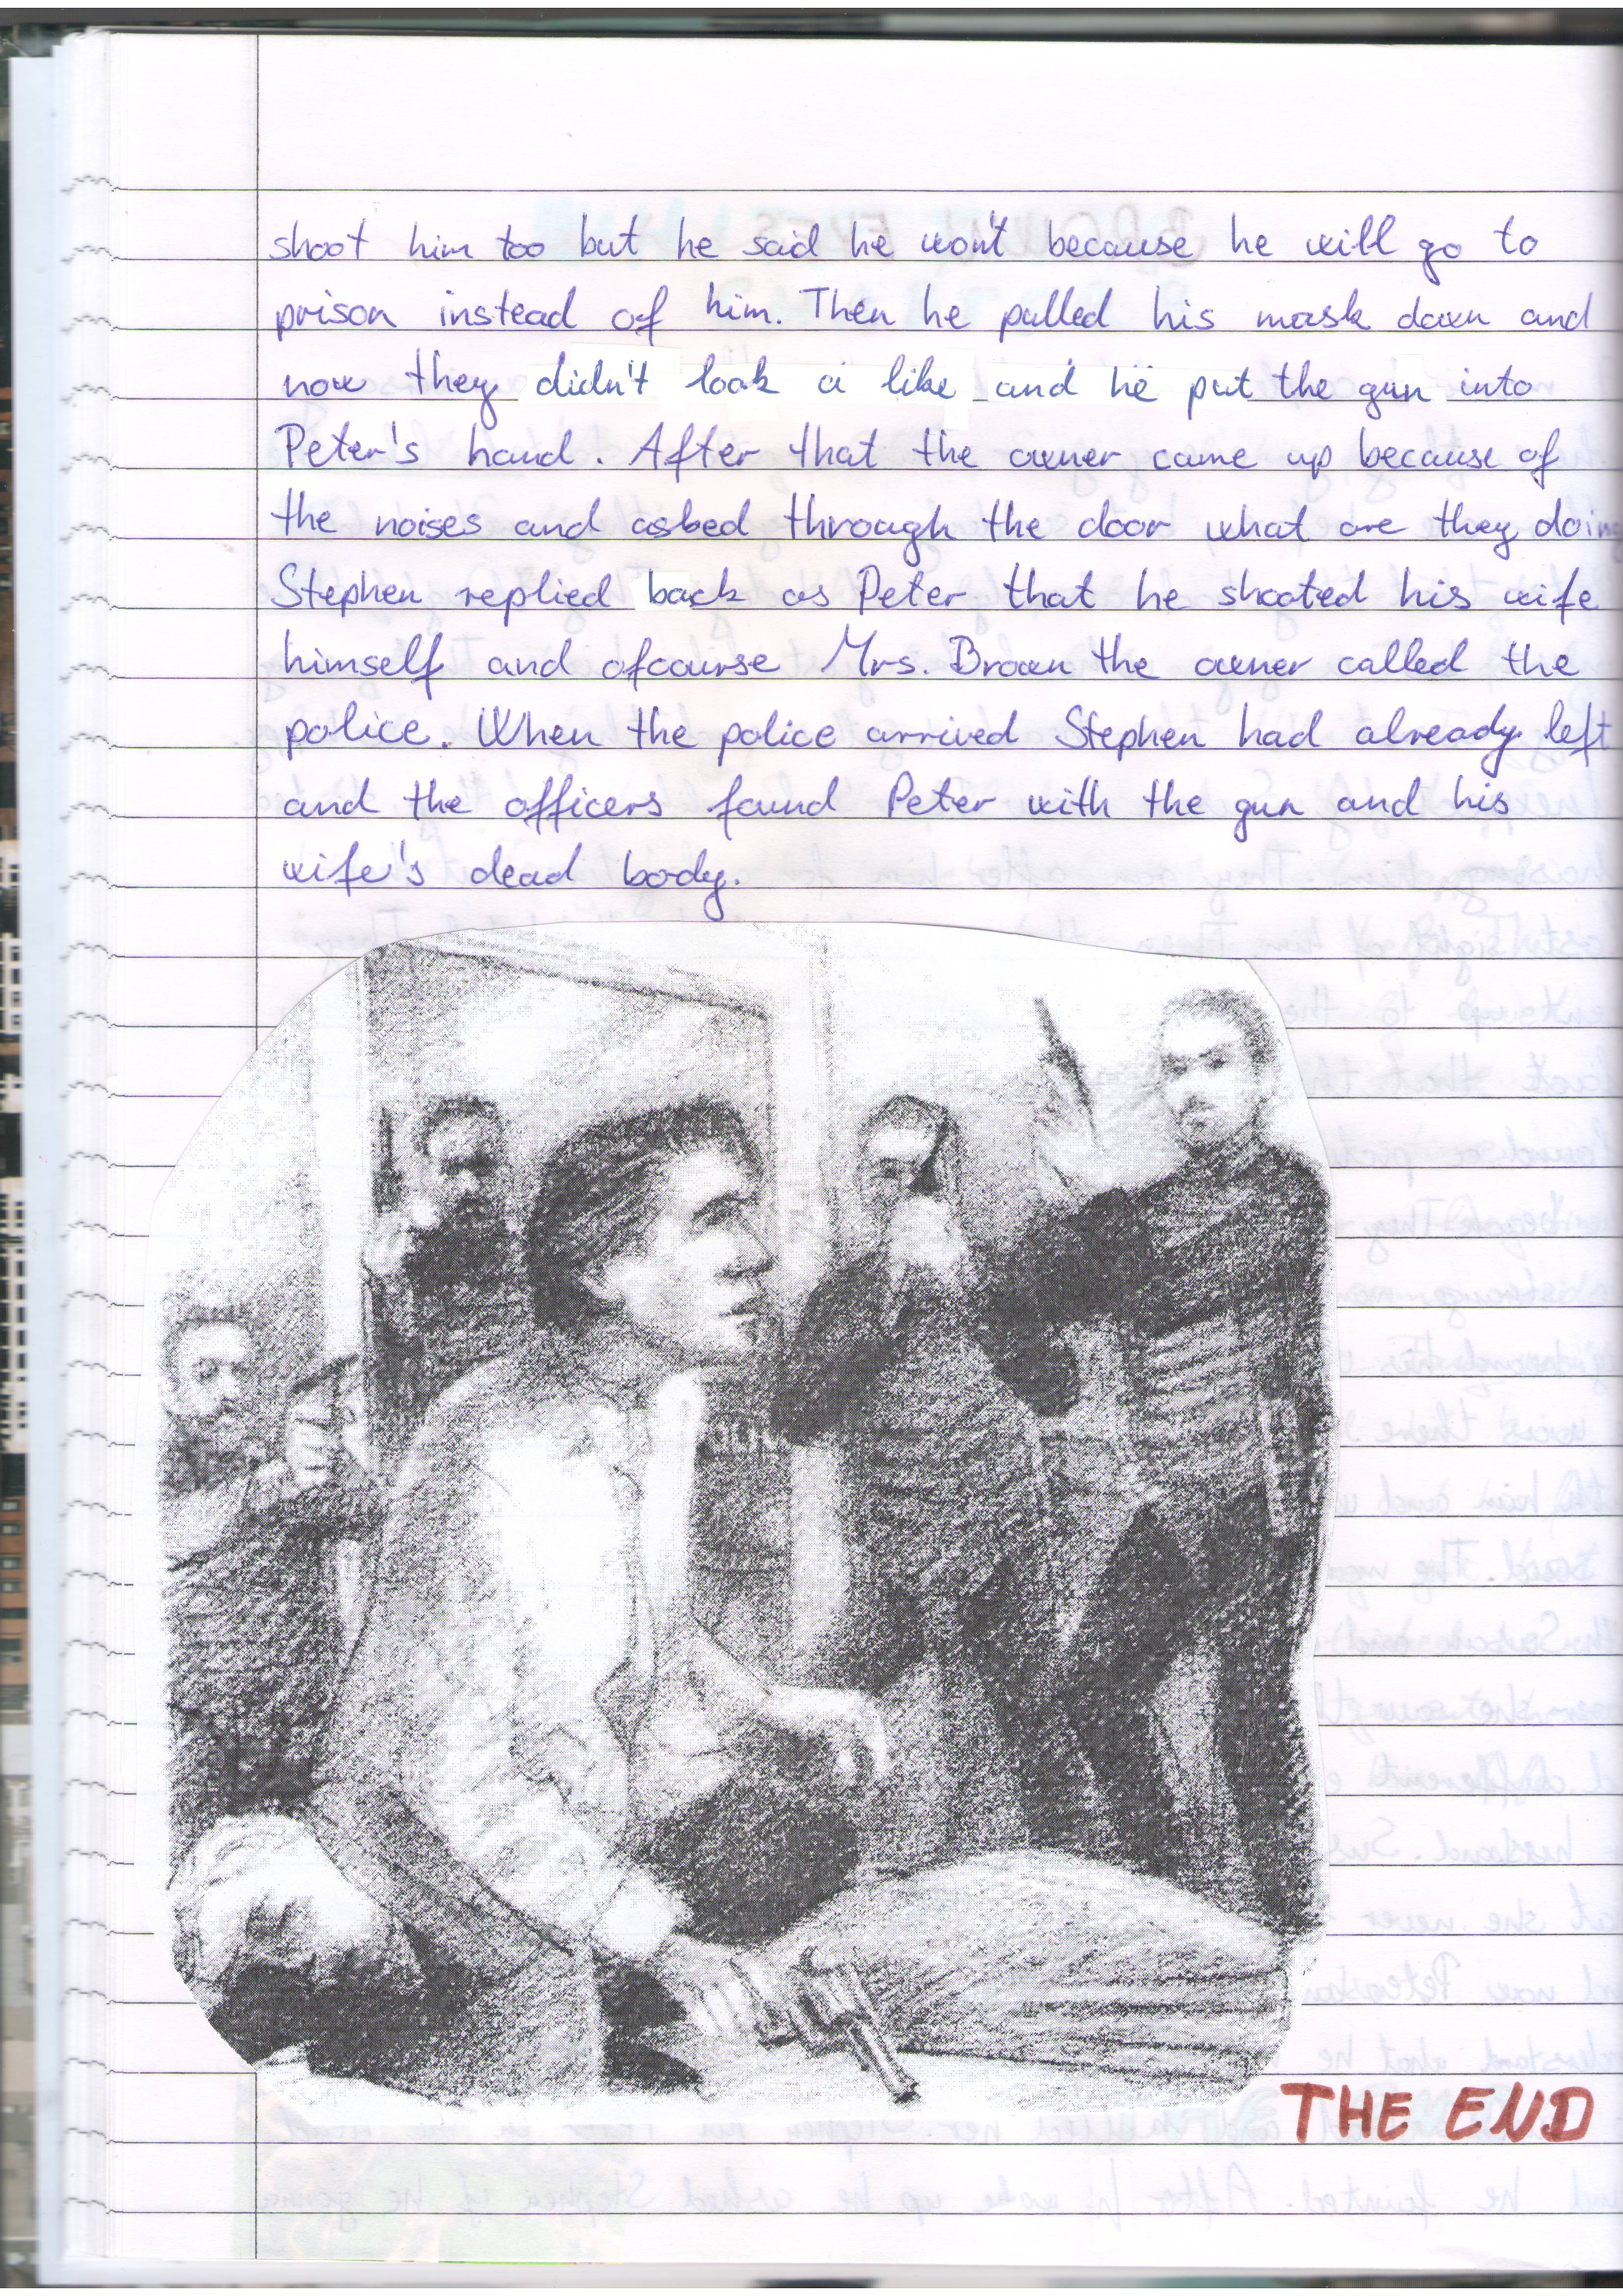 shoot him too but he said he won't because he will go to
prison instead of him. Then he pulled his mask down and
now they didn't look a like and he put the gun into
Peter's hand. After that the owner came up because of
the noises and asked through the door what are they doin
Stephen replied back as Peter that he shooted his wife
himself and ofcourse Mrs. Brown the owner called the
police. When the police arrived Stephen had already left
and the officers found Peter with the gun and his
wife's dead body.
THE END